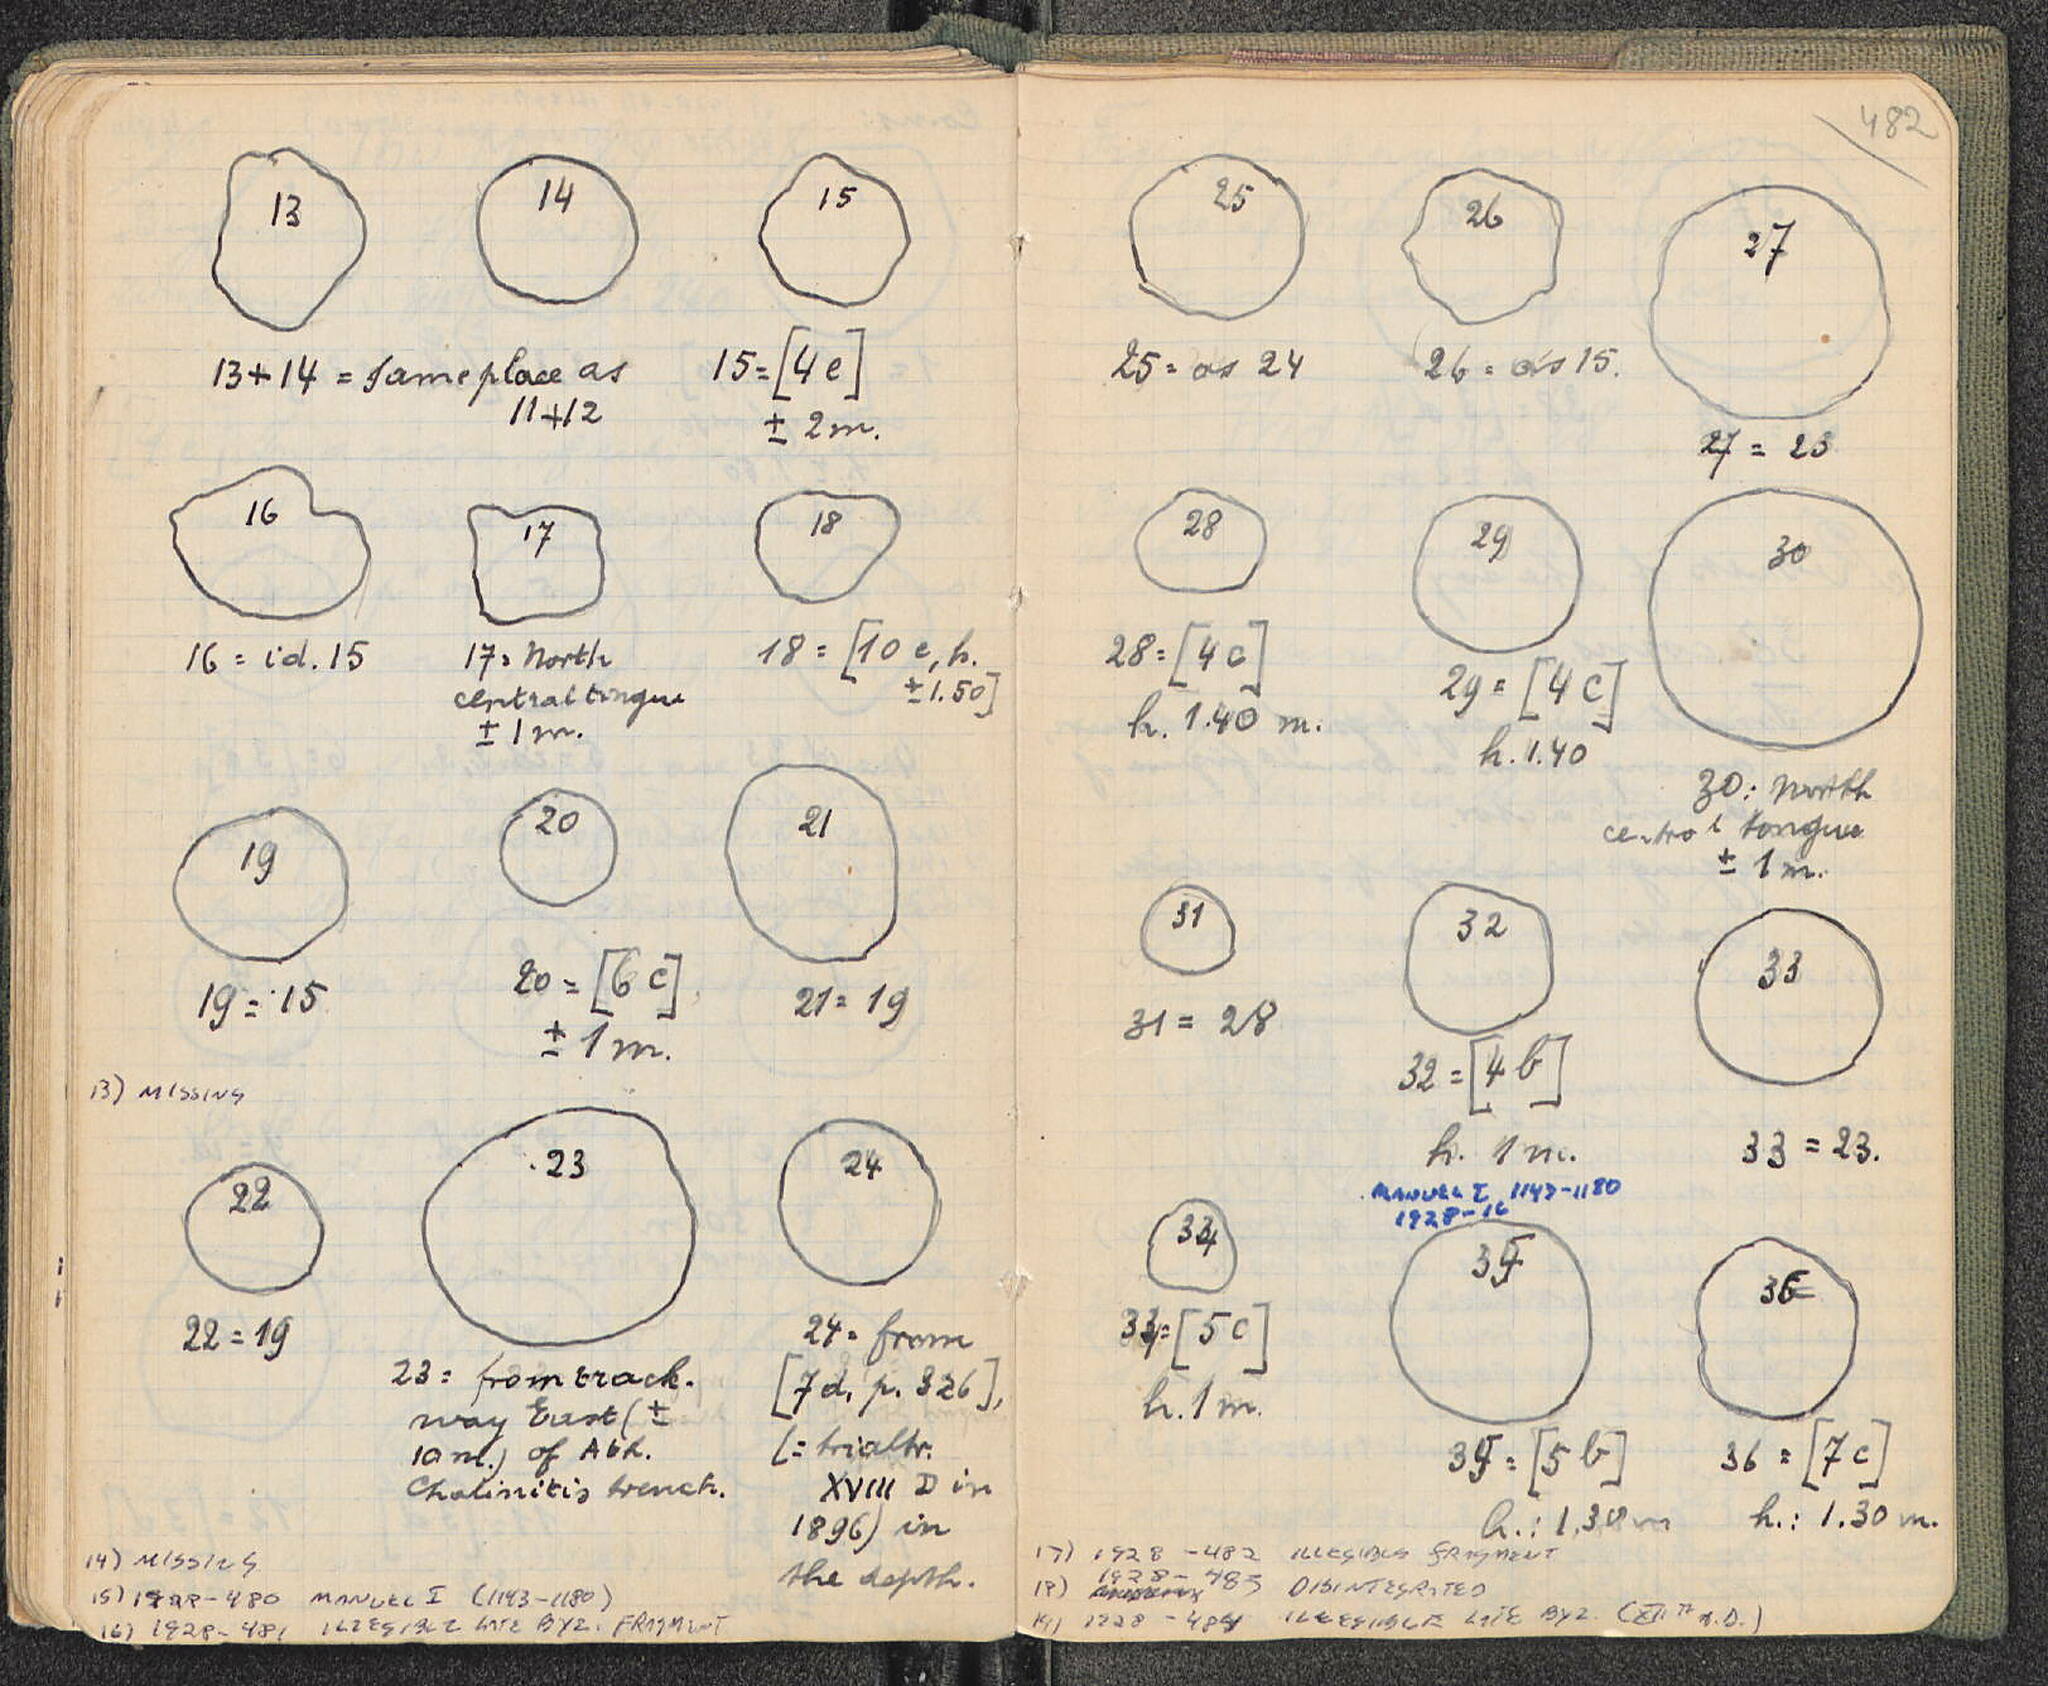 482
13
14
15
13+14 = same place as
11+12
15= [4 e]
± 2 m.
16
17
18
16 = id. 15
17= North
central tongue
± 1 m.
18 = [10 e, h.
± 1.50]
19
20
21
19 = 15
20 = [6 c]
± 1 m.
21 = 19
13) MISSING
22
23
24
22 = 19
23 = from track-
way East (±
10 m.) of Ath.
Chalinitis trench.
24 = from
[7 d, p. 326],
(= trialtr.
XVIII D in
1896) in
the depth.
14) MISSING
15) 1928-480 MANUEL I (1143-1180)
16) 1928-481 ILLEGIBLE LATE BYZ. FRAGMENT
25
26
27
25 = as 24
26 = as 15.
27 = 23
28
29
30
28 = [4 c]
h. 1.40 m.
29 = [4 c]
h. 1.40
30: North
central tongue
± 1 m.
31
32
33
31 = 28
32 = [4 b]
h. 1 m.
33 = 23.
MANUEL I 1143-1180
1928-
34
35
36
34 = [5 c]
h. 1 m.
35 = [5 b]
h.: 1.30 m
36 = [7 c]
h.: 1.30 m.
17) 1928-482 ILLEGIBLE FRAGMENT
18) 1928-483 DISINTEGRATED
19) 1928-484 ILLEGIBLE LATE BYZ. (XIIth A.D.)